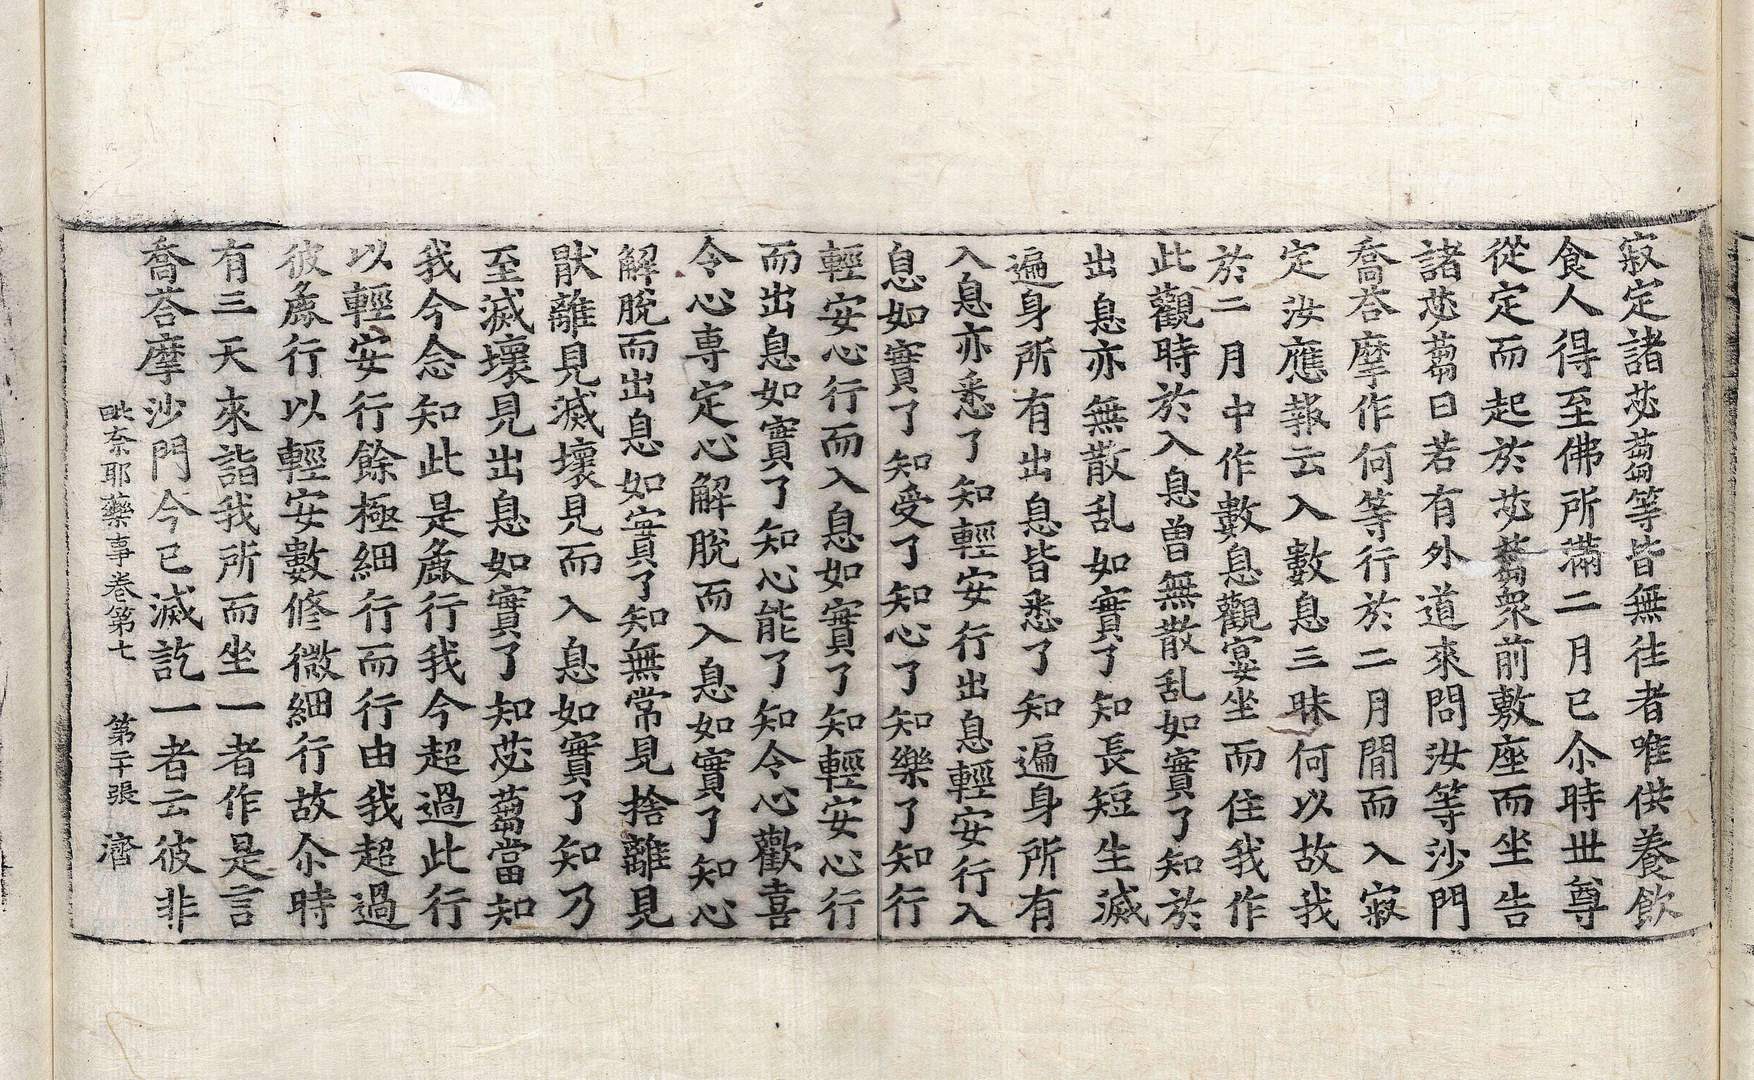 寂定諸苾蒭等皆無往者唯供養飲
食人得至佛所滿二月已尒時世尊
從定而起於苾蒭衆前敷座而坐告
諸苾蒭曰若有外道來問汝等沙門
喬荅摩作何等行於二月間而入寂
定汝應報云入數息三昧何以故我
於二月中作數息觀宴坐而住我作
此觀時於入息曽無散乱如實了知於
出息亦無散乱如實了知長短生滅
遍身所有出息皆悉了知遍身所有
入息亦悉了知輕安行出息輕安行入
息如實了知受了知心了知樂了知行
輕安心行而入息如實了知輕安心行
而出息如實了知心能了知令心歡喜
令心專定心解脫而入息如實了知心
解脫而出息如實了知無常見捨離見
猒離見滅壞見而入息如實了知乃
至滅壞見出息如實了知苾蒭當知
我今念知此是麁行我今超過此行
以輕安行餘極細行而行由我超過
彼麁行以輕安數修微細行故尒時
有三天來詣我所而坐一者作是言
喬荅摩沙門今已滅訖一者云彼非
毗奈耶藥事卷第七 第二十張 濟